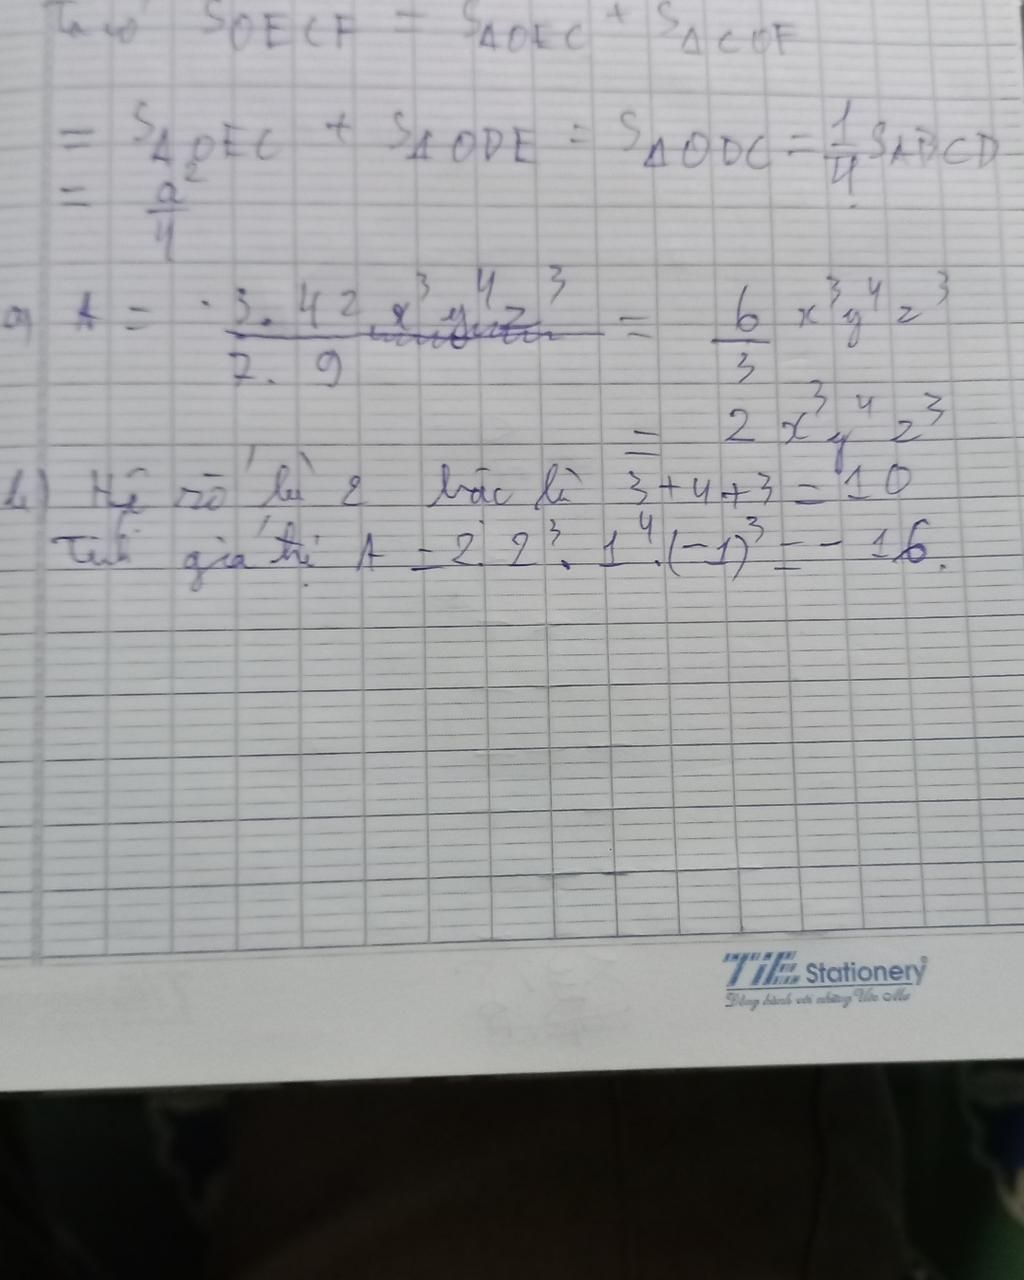 Ta có S OECF = S ΔOEC + S ΔCOF
= S ΔOEC + S ΔODE = S ΔODC = 1/4 S ABCD
= a²/4
a) A = 3.42 x³y⁴z³ / 7.9 = 6/3 x³y⁴z³
= 2 x³y⁴z³
b) Hệ số là 2 bậc là 3+4+3 = 10
Tính giá trị A = 2.2³.1⁴.(-1)³ = -16.
TiE Stationery
Đồng hành với những Ước Mơ